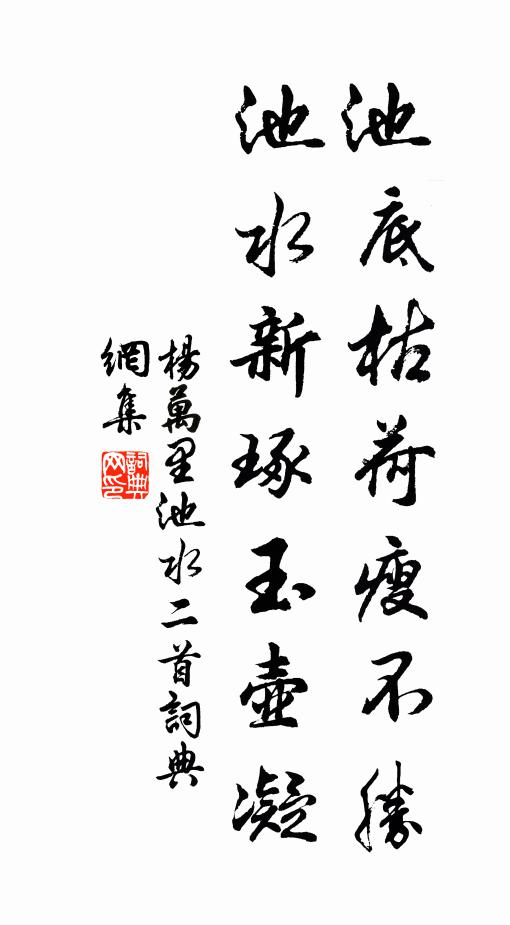 池底枯荷瘦不勝
池水新琢玉壺凝
楊萬里池水二首詞典
網集
詞典網印